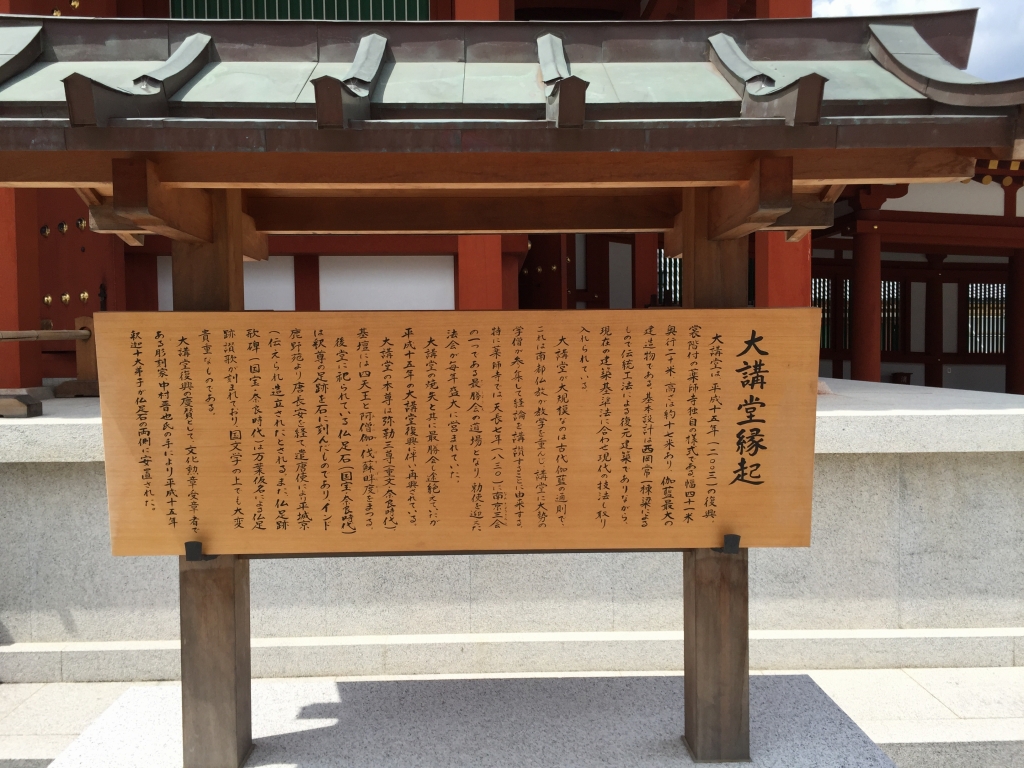 大講堂縁起
大講堂は、平成十五年(二〇〇三)の復興
裳階付の薬師寺独自の様式である。幅四十一米
奥行二十米 高さは約十七米あり、伽藍最大の
建造物である。基本設計は西岡常一棟梁による
しので伝統工法による復元建築でありながら、
現在の建築基準法に合わせ現代の技法も取り
入れられている。
大講堂が大規模なのは古代伽藍の通則で、
これは南都仏教が教学を重んじ 講堂に大勢の
学僧が参集して経論を講讃することに由来する。
特に薬師寺では 天長七年(八三〇)に南京三会
の一つである最勝会の道場となり 勅使を迎えた
法会が毎年盛大に営まれていた。
大講堂の焼失と共に最勝会も途絶えていたが
平成十五年の大講堂復興に伴い再興されている。
大講堂の本尊は弥勒三尊(重文・奈良時代)
基壇には四天王と阿僧伽・伐蘇畔度をまつる。
後堂に祀られている仏足石(国宝・奈良時代)
は釈尊の足跡を石に刻んだものでありインド
鹿野苑より唐長安を経て遣唐使により平城京
に伝えられ造立されたとされる。また、仏足跡
歌碑(国宝・奈良時代)は万葉仮名による仏足
跡讃歌が刻まれており、国文学の上でも大変
貴重なものである。
大講堂復興の慶賛として、文化勲章受章者で
ある彫刻家 中村晋也氏の手により平成十五年
釈迦十大弟子が仏足石の両側に安置された。